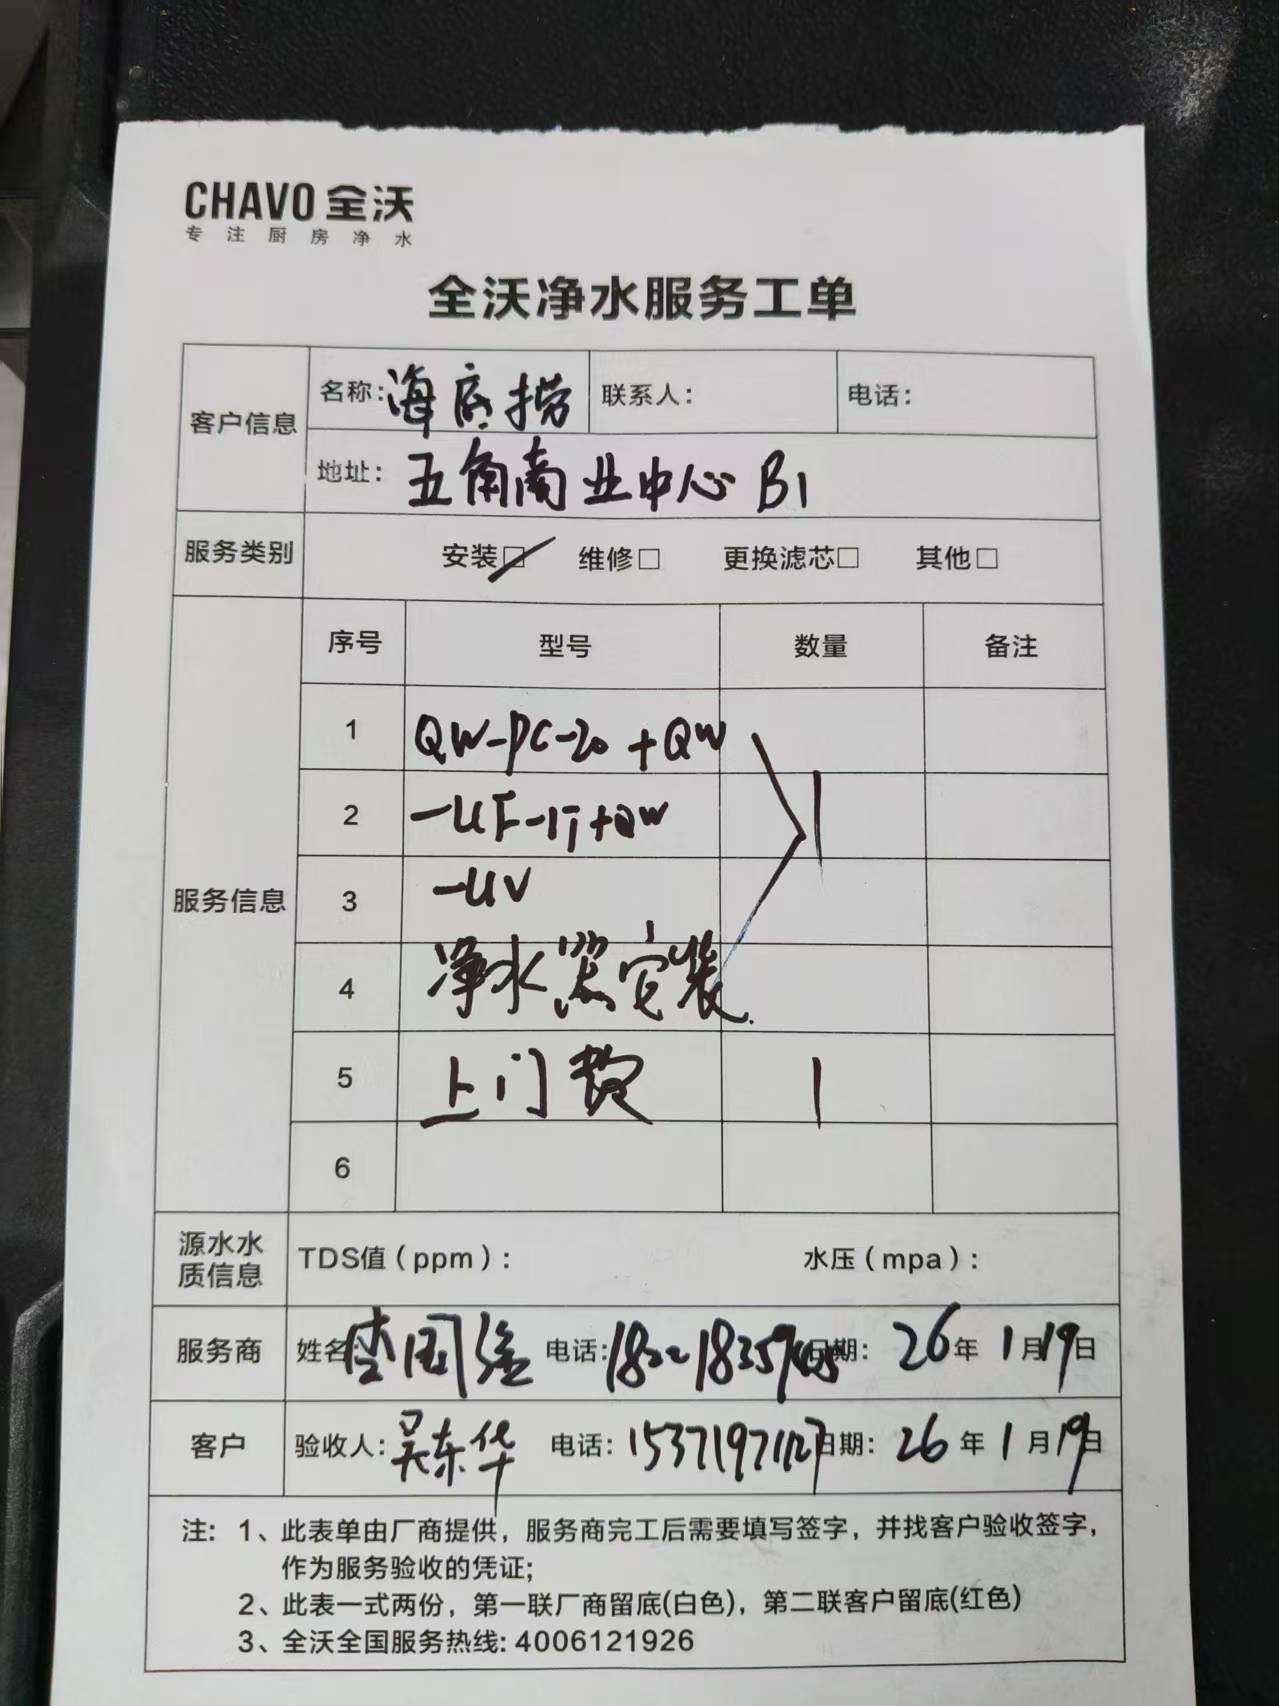 CHAVO 全沃
专注厨房净水
全沃净水服务工单
客户信息 名称: 海底捞 联系人: 电话:
地址: 五角商业中心 B1
服务类别 安装☑ 维修□ 更换滤芯□ 其他□
服务信息 序号 型号 数量 备注
1 QW-PC-20 + QW
2 -UF-1T+QW 1
3 -UV
4 净水器安装
5 上门费 1
6
源水水质信息 TDS值(ppm): 水压(mpa):
服务商 姓名: 李国强 电话: 日期: 26年1月19日
客户 验收人: 吴东华 电话: 15371971127 日期: 26年1月19日
注: 1、此表单由厂商提供，服务商完工后需要填写签字，并找客户验收签字，
作为服务验收的凭证;
2、此表一式两份，第一联厂商留底(白色)，第二联客户留底(红色)
3、全沃全国服务热线: 4006121926